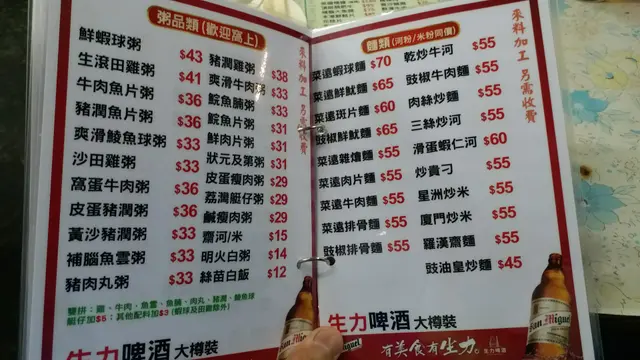 粥品類(歡迎窩上)
鮮蝦球粥 $43
生滾田雞粥 $41
牛肉魚片粥 $36
豬潤魚片粥 $36
爽滑鯪魚球粥 $33
沙田雞粥 $33
窩蛋牛肉粥 $36
皮蛋豬潤粥 $36
黃沙豬潤粥 $33
補腦魚雲粥 $33
豬肉丸粥 $33
豬潤雞粥 $38
爽滑牛肉粥 $33
鯇魚腩粥 $33
鯇魚片粥 $31
鮮肉片粥 $31
狀元及第粥 $31
皮蛋瘦肉粥 $29
荔灣艇仔粥 $29
鹹瘦肉粥 $29
齋河/米 $15
明火白粥 $14
絲苗白飯 $12
來料加工 另需收費
雙拼:雞、牛肉、魚雲、魚腩、肉丸、豬潤、鯪魚球
艇仔加$5;其他配料加$9(蝦球及田雞除外)
生力啤酒 大樽裝
麵類(河粉/米粉同價)
菜遠蝦球麵 $70
菜遠鮮魷麵 $65
菜遠斑片麵 $60
豉椒鮮魷麵 $65
菜遠雜燴麵 $55
菜遠肉片麵 $55
菜遠牛肉麵 $55
菜遠排骨麵 $55
豉椒排骨麵 $55
乾炒牛河 $55
豉椒牛肉麵 $55
肉絲炒麵 $55
三絲炒河 $55
滑蛋蝦仁河 $60
炒貴刁 $55
星洲炒米 $55
廈門炒米 $55
羅漢齋麵 $55
豉油皇炒麵 $45
來料加工 另需收費
生力啤酒 大樽裝
有美食有生力
生力啤酒
San Miguel